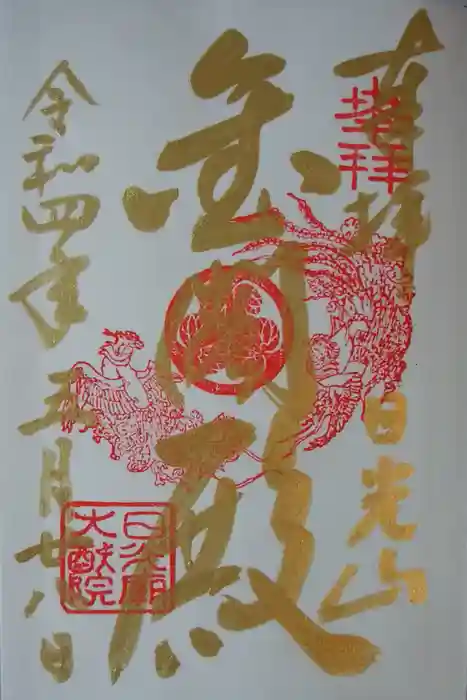 奉拝 日光山
金閣殿
令和四年五月廿八日
日光廟
大猷院